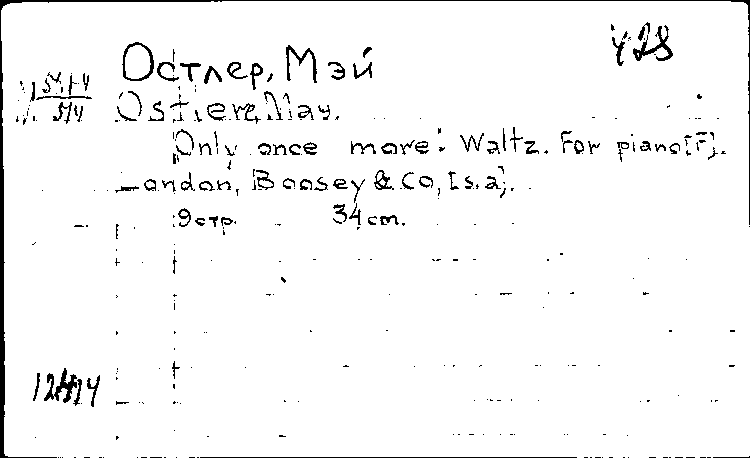 Остлер, Мэй
Ostlere, May.
"Only once more". Waltz. For piano [F].
London, Boosey & Co, [s.a].
9стр. 34 cm.